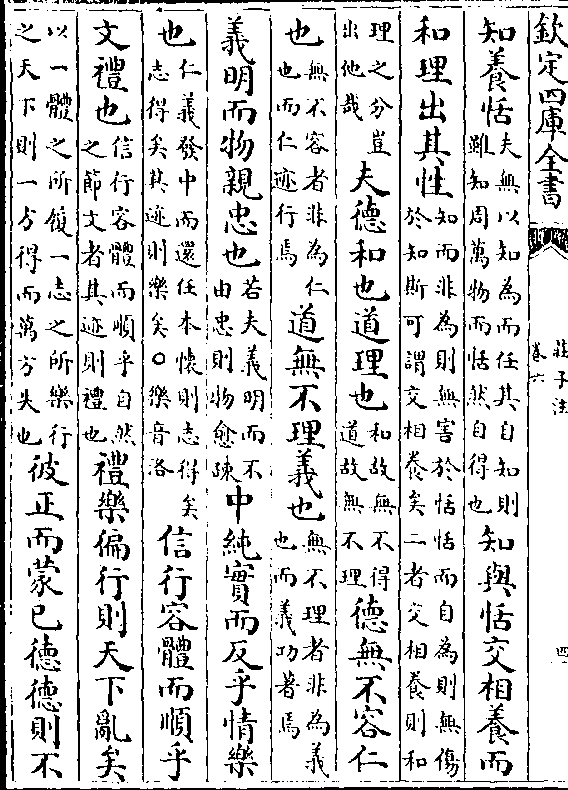 欽定四庫全書
莊子注
卷六
四
知養恬夫無以知為而任其自知則雖知周萬物而恬然自得也知與恬交相養而
和理出其性知而非為則無害於恬恬而自為則無傷於知斯可謂交相養矣二者交相養則和
理之分豈出他哉夫德和也道理也和故無不得道故無不理德無不容仁
也無不容者非為仁也而仁迹行焉道無不理義也無不理者非為義也而義功著焉
義明而物親忠也若夫義明而不由忠則物愈疎中純實而反乎情樂
也仁義發中而還任本懷則志得矣志得矣其迹則樂矣○樂音洛信行容體而順乎
文禮也信行容體而順乎自然之節文者其迹則禮也禮樂偏行則天下亂矣
以一體之所履一志之所樂行之天下則一方得而萬方失也彼正而蒙已德德則不